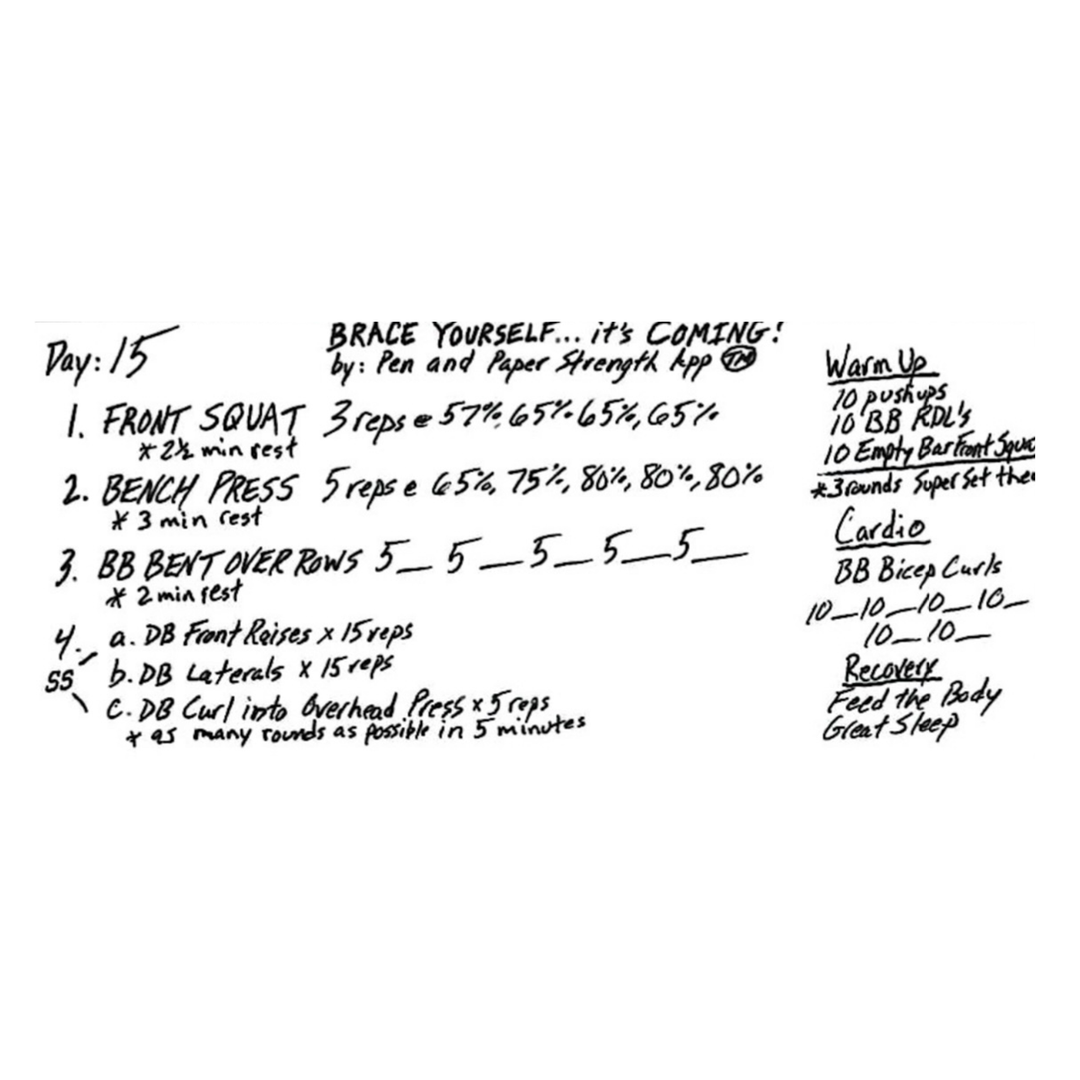 Day: 15
BRACE YOURSELF... it's COMING!
by: Pen and Paper Strength App TM
1. FRONT SQUAT 3 reps @ 57%, 65%, 65%, 65%
* 2½ min rest
2. BENCH PRESS 5 reps @ 65%, 75%, 80%, 80%, 80%
* 3 min rest
3. BB BENT OVER ROWS 5_ 5_ 5_ 5_ 5_
* 2 min rest
4. a. DB Front Raises x 15 reps
SS b. DB Laterals x 15 reps
c. DB Curl into Overhead Press x 5 reps
* as many rounds as possible in 5 minutes
Warm Up
10 pushups
10 BB RDL's
10 Empty Bar Front Squa
* 3 rounds Super Set the
Cardio
BB Bicep Curls
10_10_10_10_
10_10_
Recovery
Feed the Body
Great Sleep